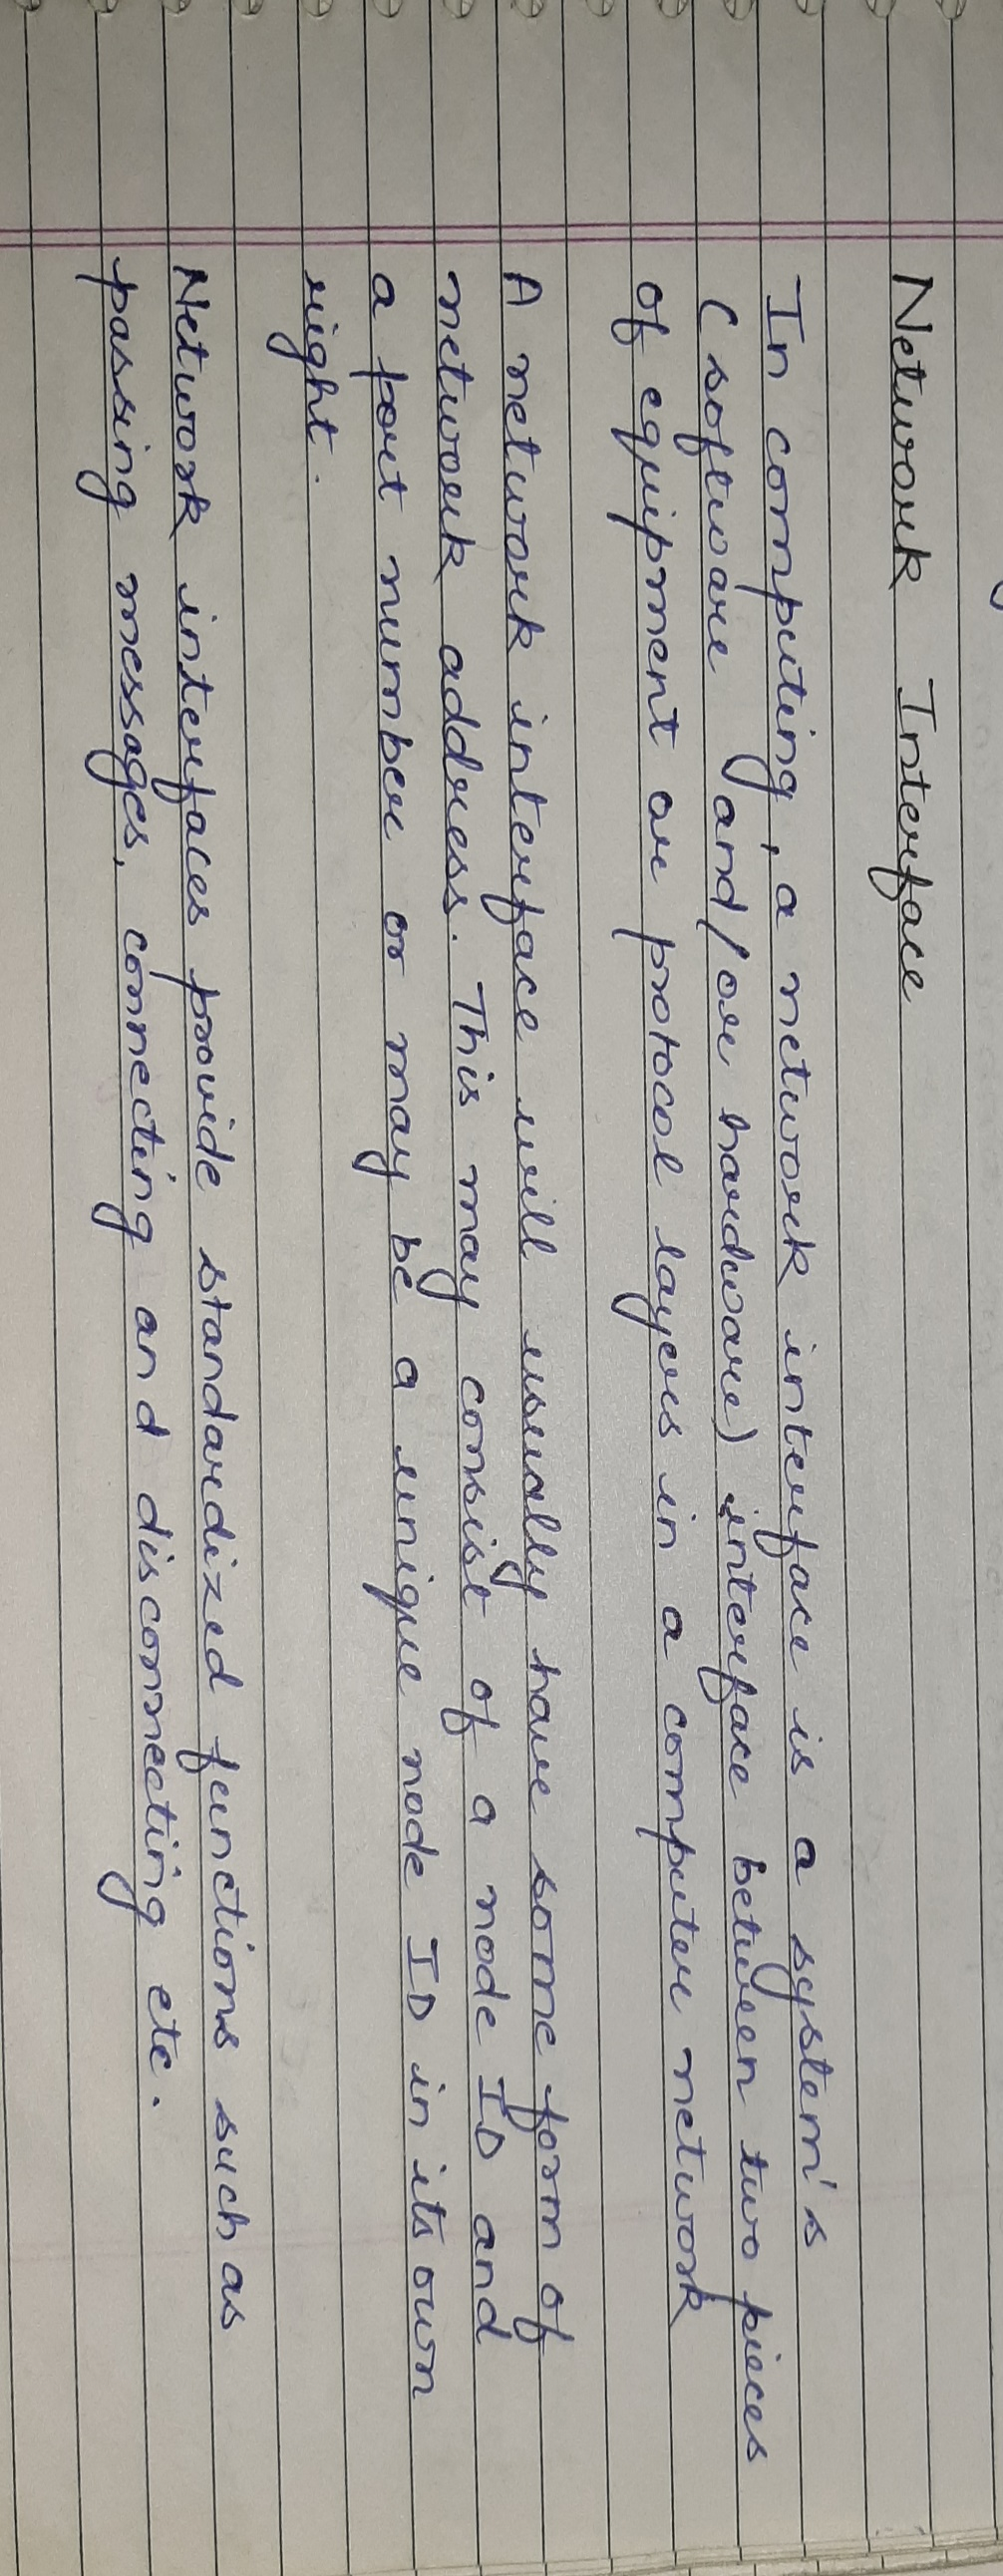 Network Interface
In computing, a network interface is a system's
(software and/or hardware) interface between two pieces
of equipment or protocol layers in a computer network
A network interface will usually have some form of
network address. This may consist of a node ID and
a port number or may be a unique node ID in its own
right.
Network interfaces provide standardized functions such as
passing messages, connecting and disconnecting etc.